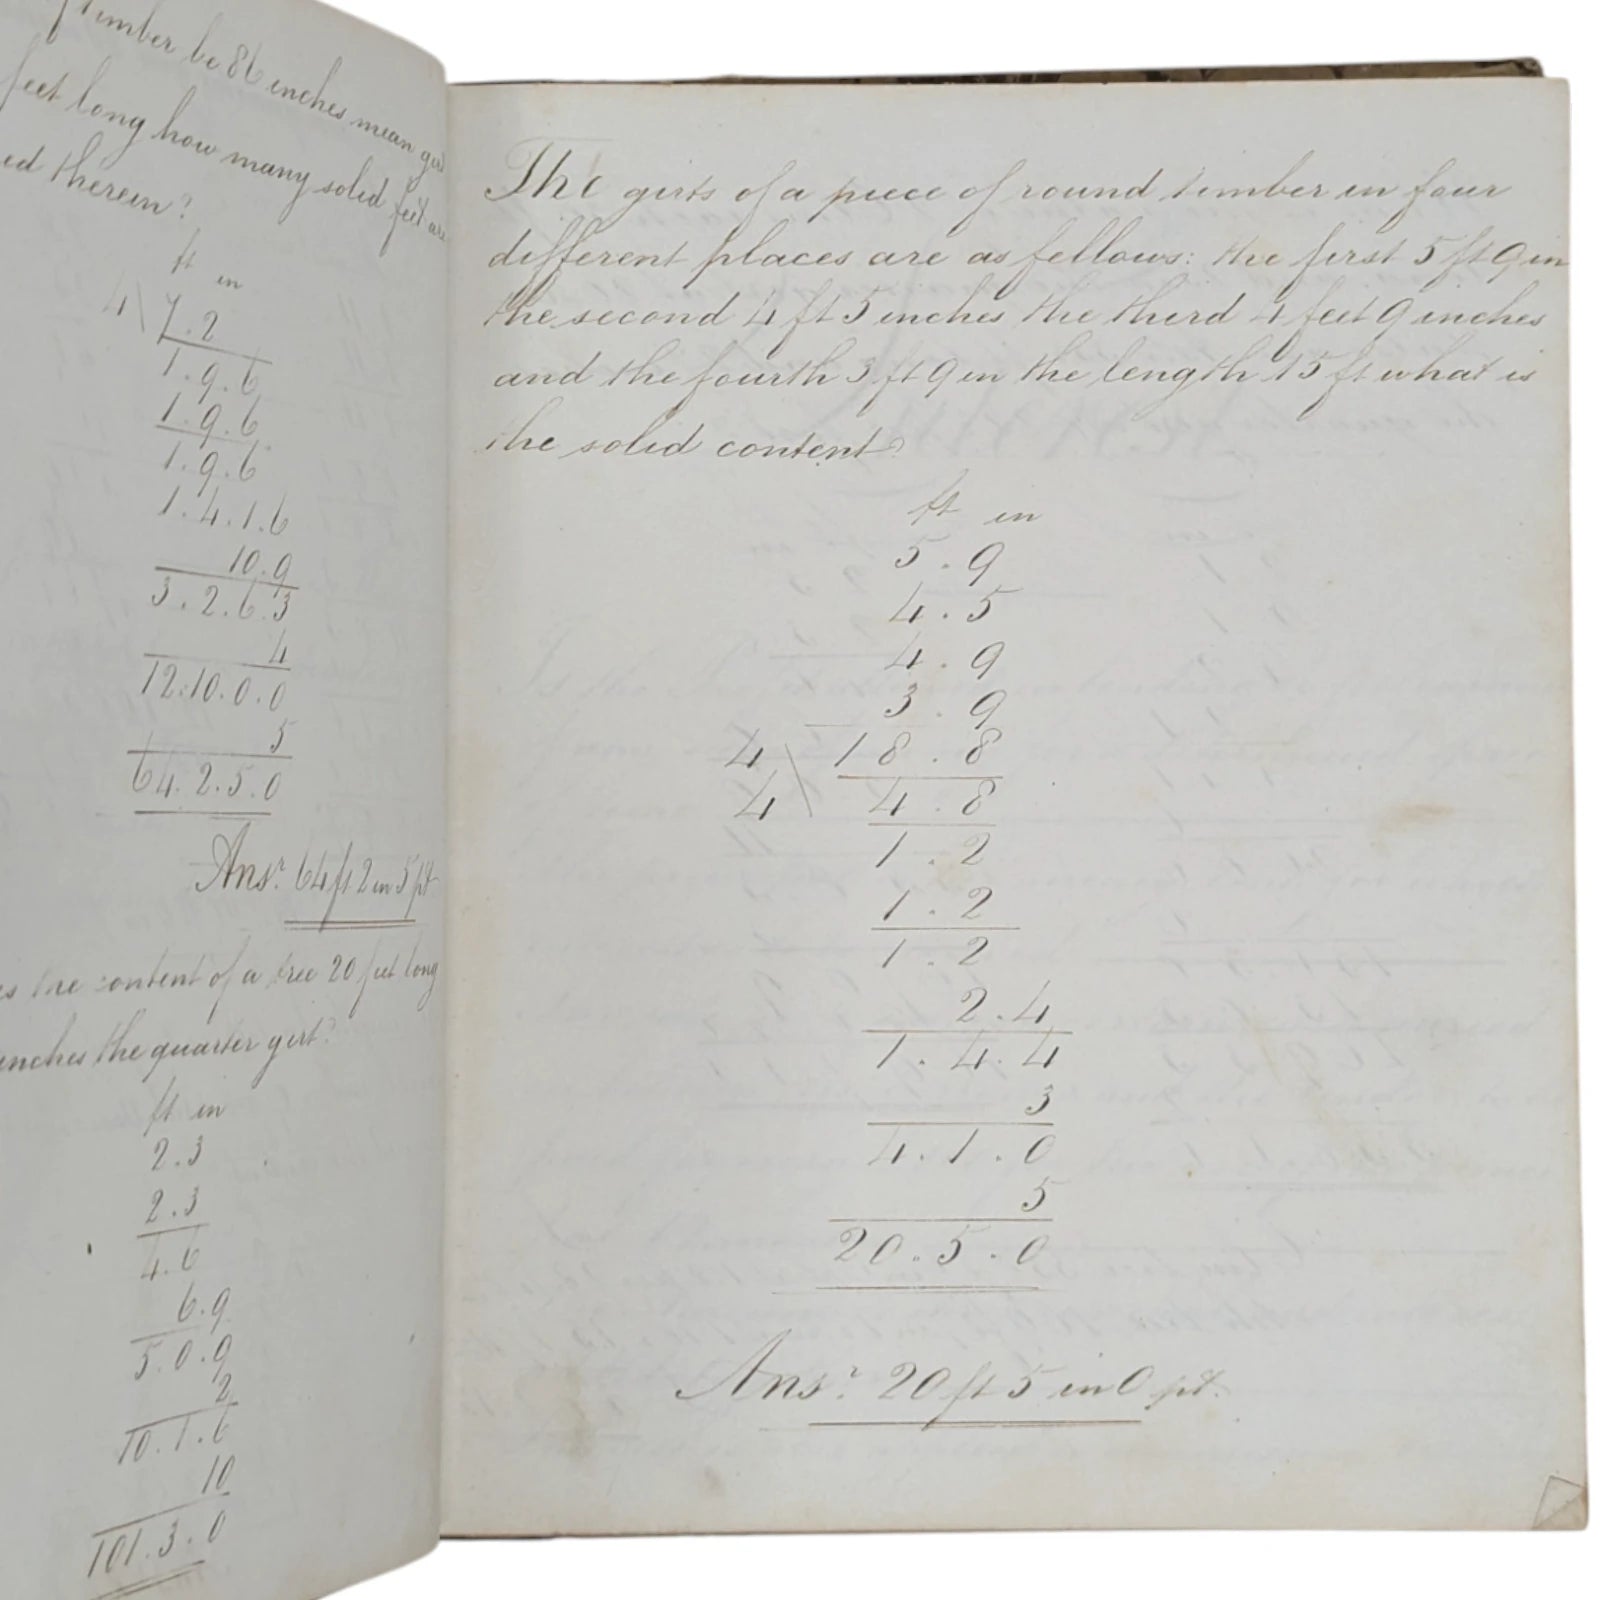 timber be 86 inches mean
feet long how many solid feet are
therein?
ft in
4\7.2
1.9.6
1.9.6
1.9.6
1.4.1.6
10.9
3.2.6.3
4
12.10.0.0
5
64.2.5.0
Ansr. 64 ft 2 in 5 pt
the content of a tree 20 feet long
inches the quarter girt?
ft in
2.3
2.3
4.6
6.9
5.0.9
2
10.1.6
10
101.3.0
The girts of a piece of round timber in four
different places are as fellows: the first 5 ft 9 in
the second 4 ft 5 inches the third 4 feet 9 inches
and the fourth 3 ft 9 in the length 15 ft what is
the solid content?
ft in
5.9
4.5
4.9
3.9
4\18.8
4\4.8
1.2
1.2
1.2
2.4
1.4.4
3
4.1.0
5
20.5.0
Ansr. 20 ft 5 in 0 pt.